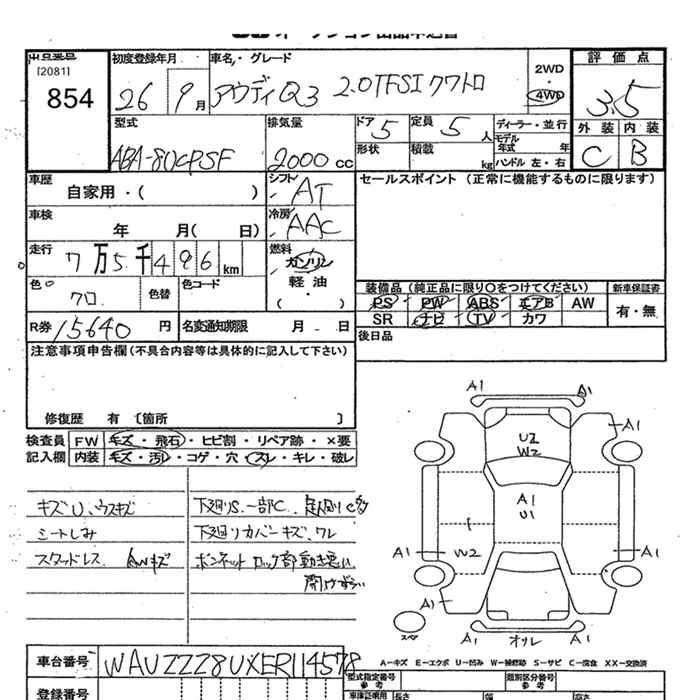 出品番号
[2081]
854
初度登録年月
26 9月
車名・グレード
アウディQ3 2.0TFSIクワトロ
2WD
・
4WD
評価点
3.5
外装 内装
C B
型式
ABA-8UCPSF
排気量
2000cc
ドア 5
形状
定員 5人
積載 kg
ディーラー・並行
モデル年式 年
ハンドル 左・右
車歴
自家用・( )
シフト
AT
車検
年 月( 日)
冷房
AAC
走行
7万5千496km
燃料
ガソリン
軽油
( ・ )
色
クロ
色替
色コード
R券 15640円
名変通知期限 月 日
セールスポイント (正常に機能するものに限ります)
装備品 (純正品に限り○をつけてください)
新車保証書
PS PW ABS エアB AW
SR ナビ TV カワ
有・無
後日品
注意事項申告欄(不具合内容等は具体的に記入して下さい)
修復歴 有 〔箇所 〕
検査員
記入欄
FW キズ・飛石・ヒビ割・リペア跡・×要
内装 キズ・汚レ・コゲ・穴・スレ・キレ・破レ
キズU、ウスキズ
シートしみ
スタッドレス AWキズ
下廻りS.一部C.
下廻りカバーキズ、ワレ
ボンネットロック部動き悪い
開けずらい
A1
A1
A1
U2
W2
A1
U1
A1
W2
A1
A1
スペア
A1
オリレ
A1
A−キズ E−エクボ U−凹み W−補修跡 S−サビ C−腐食 XX−交換済
車台番号
WAUZZZ8UXER114578
登録番号
型式指定番号
参考
類別区分番号
参考
車庫証明用
長さ
幅
高さ